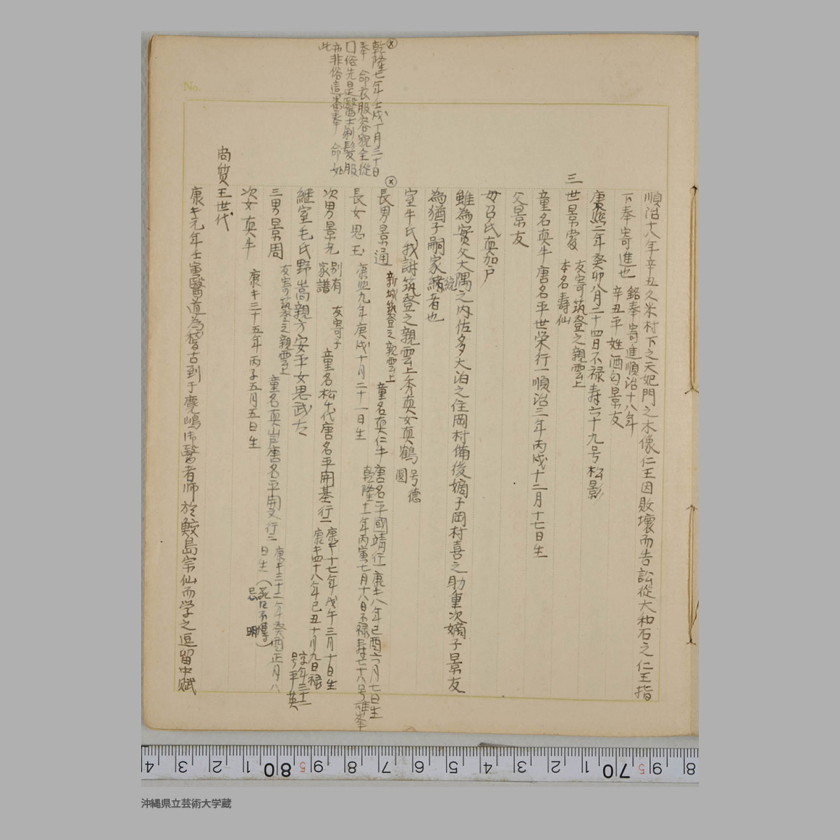 順治十八年辛丑久米村下之天妃門之木像仁王因敗壞而告訟從大和石之仁王指
下奉寄進也 銘奉寄進順治十八年
辛丑年 姓酒匂景友
康熙二年癸卯八月二十四日不禄壽六十九号松影
三世景 友寄筑登之親雲上
本名壽仙
童名真牛唐名平世栄行一順治三年丙戌十二月十七日生
父景友
母呂氏真加戸
雖為實父大隅之内佐多大泊之住岡村備後嫡子岡村喜之助重次嫡子景友
為猶子嗣家統者也
室牛氏我謝筑登之親雲上秀真女真鶴 号德
圓
ⓧ
長男景通 新城筑登之親雲上 童名真仁牛唐名平國靖行一康キ八年己酉六月七日生
乾隆十一年丙寅七月十八日不禄寿七十八号雄峯
長女思玉 康熙九年庚戌十月二十一日生
次男景光 別有家譜 友寄子 童名松千代唐名平開基行二 康キ十七年戊午三月十日生
康キ四十八年己丑十月九日禄
享年三十二
号平英
継室毛氏野嵩親方安平女思武太
三男景周 友寄筑登之親雲上 童名真山戸唐名平開 行三 康キ三十二年癸酉正月八
日生(死忌不明)
次女真牛 康キ三十五年丙子五月五日生
尚質王世代
康キ元年壬寅醫道為稽古到于慶嶋御醫者師於鮫島宗仙而学之逗留中賦
ⓧ
乾隆七年壬戌丁月三十日
奉 命衣服容貌全從
口俗先是醫士剃髮服
亦非俗 奉 命如
此
No.
8 9 5 70 1 2 3 4 5 6 7 8 9 5 80 1 2 3 4
沖縄県立芸術大学蔵